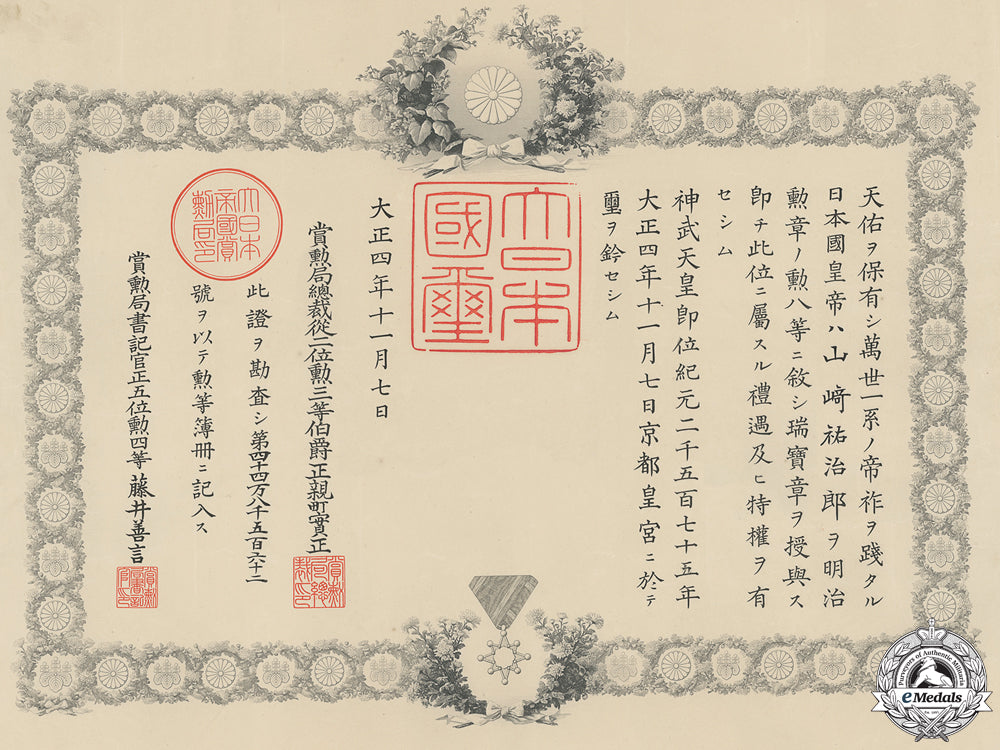 天佑ヲ保有シ萬世一系ノ帝祚ヲ踐タル
日本國皇帝ハ山﨑祐治郎ヲ明治
勲章ノ勲八等ニ敘シ瑞寶章ヲ授與ス
卽チ此位ニ屬スル禮遇及ヒ特權ヲ有
セシム
神武天皇卽位紀元二千五百七十五年
大正四年十一月七日京都皇宮ニ於テ
璽ヲ鈐セシム
大日本
國璽
大正四年十一月七日
賞勲局總裁從二位勲三等伯爵正親町實正
賞勲局總裁印
此證ヲ勘査シ第四十四万八千五百六十二
號ヲ以テ勲等簿冊ニ記入ス
大日本
帝國賞
勲局印
賞勲局書記官正五位勲四等藤井善言
Purveyors of Authentic Militaria
eMedals